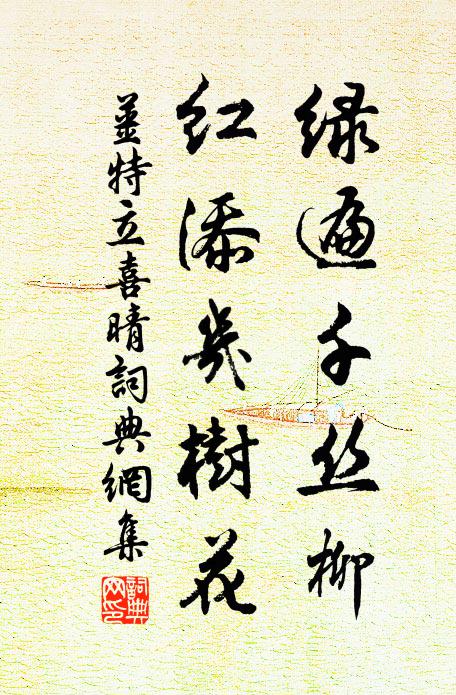 绿遍千丝柳
红添几樹花
姜特立喜晴詞典網集
詞典網印